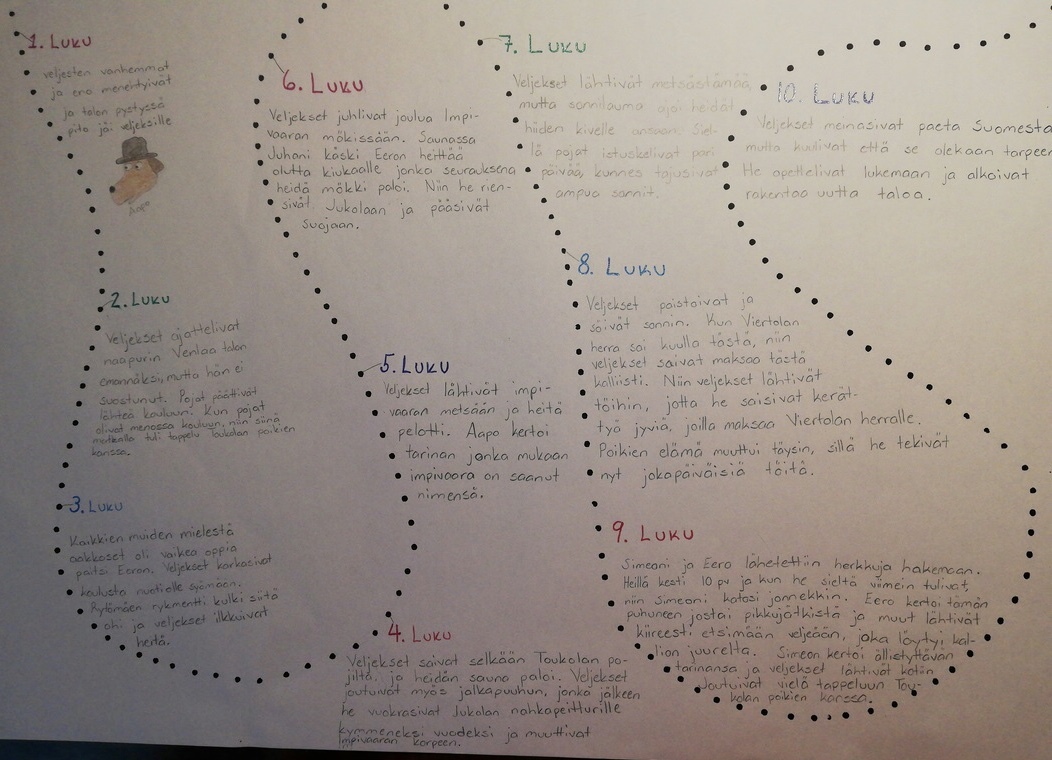 1. Luku
veljesten vanhemmat
ja eno menehtyivät
ja talon pystyssä
pito jäi veljeksille
Aapo
2. Luku
Veljekset ajattelivat
naapurin Venlaa talon
emännäksi, mutta hän ei
suostunut. Pojat päättivät
lähteä kouluun. Kun pojat
olivat menossa kouluun, niin siinä
matkalla tuli tappelu Toukolan poikien
kanssa.
3. Luku
Kaikkien muiden mielestä
aakkoset oli vaikea oppia
paitsi Eeron. Veljekset karkasivat
koulusta nuotiolle syömään.
Rytömäen rykmentti kulki siitä
ohi ja veljekset ilkkuivat
heitä.
4. Luku
Veljekset saivat selkään Toukolan po-
jilta, ja heidän sauna paloi. Veljekset
joutuivat myös jalkapuuhun, jonka jälkeen
he vuokrasivat Jukolan nahkapeitturille
kymmeneksi vuodeksi ja muuttivat
Impivaaran korpeen.
5. Luku
Veljekset lähtivät impi-
vaaran metsään ja heitä
pelotti. Aapo kertoi
tarinan jonka mukaan
impivaara on saanut
nimensä.
6. Luku
Veljekset juhlivat joulua Impi-
vaaran mökissään. Saunassa
Juhani käski Eeron heittää
olutta kiukaalle jonka seurauksena
heidä mökki paloi. Niin he rien-
sivät Jukolaan ja pääsivät
suojaan.
7. Luku
Veljekset lähtivät metsästämää,
mutta sonnilauma ajoi hedät
hiiden kivelle ansaan. Siel-
lä pojat istuskelivat pari
päivää, kunnes tajusivat
ampua sonnit.
8. Luku
Veljekset paistoivat ja
söivät sonnin. Kun Viertolan
herra sai kuulla tästä, niin
veljekset saivat maksaa tästä
kalliisti. Niin veljekset lähtivät
töihin, jotta he saisivat kerät-
tyä jyviä, joilla maksaa Viertolan herralle.
Poikien elämä muuttui täysin, sillä he tekivät
nyt jokapäiväisiä töitä.
9. Luku
Simeoni ja Eero lähetettiin herkkuja hakemaan.
Heillä kesti 10 pv ja kun he sieltä viimein tulivat,
niin Simeoni katosi jonnekkin. Eero kertoi tämän
puhuneen jostai pikkujätkistä ja muut lähtivät
kiireesti etsimään veljeään, joka löytyi kal-
lion juurelta. Simeon kertoi ällistyttävän
tarinansa ja veljekset lähtivät kotiin
Joutuivat vielä tappeluun Tou-
kolan poikien kanssa.
10. Luku
Veljekset meinasivat paeta Suomesta
mutta kuulivat että se olekaan tarpeen
He opettelivat lukemaan ja alkoivat
rakentaa uutta taloa.